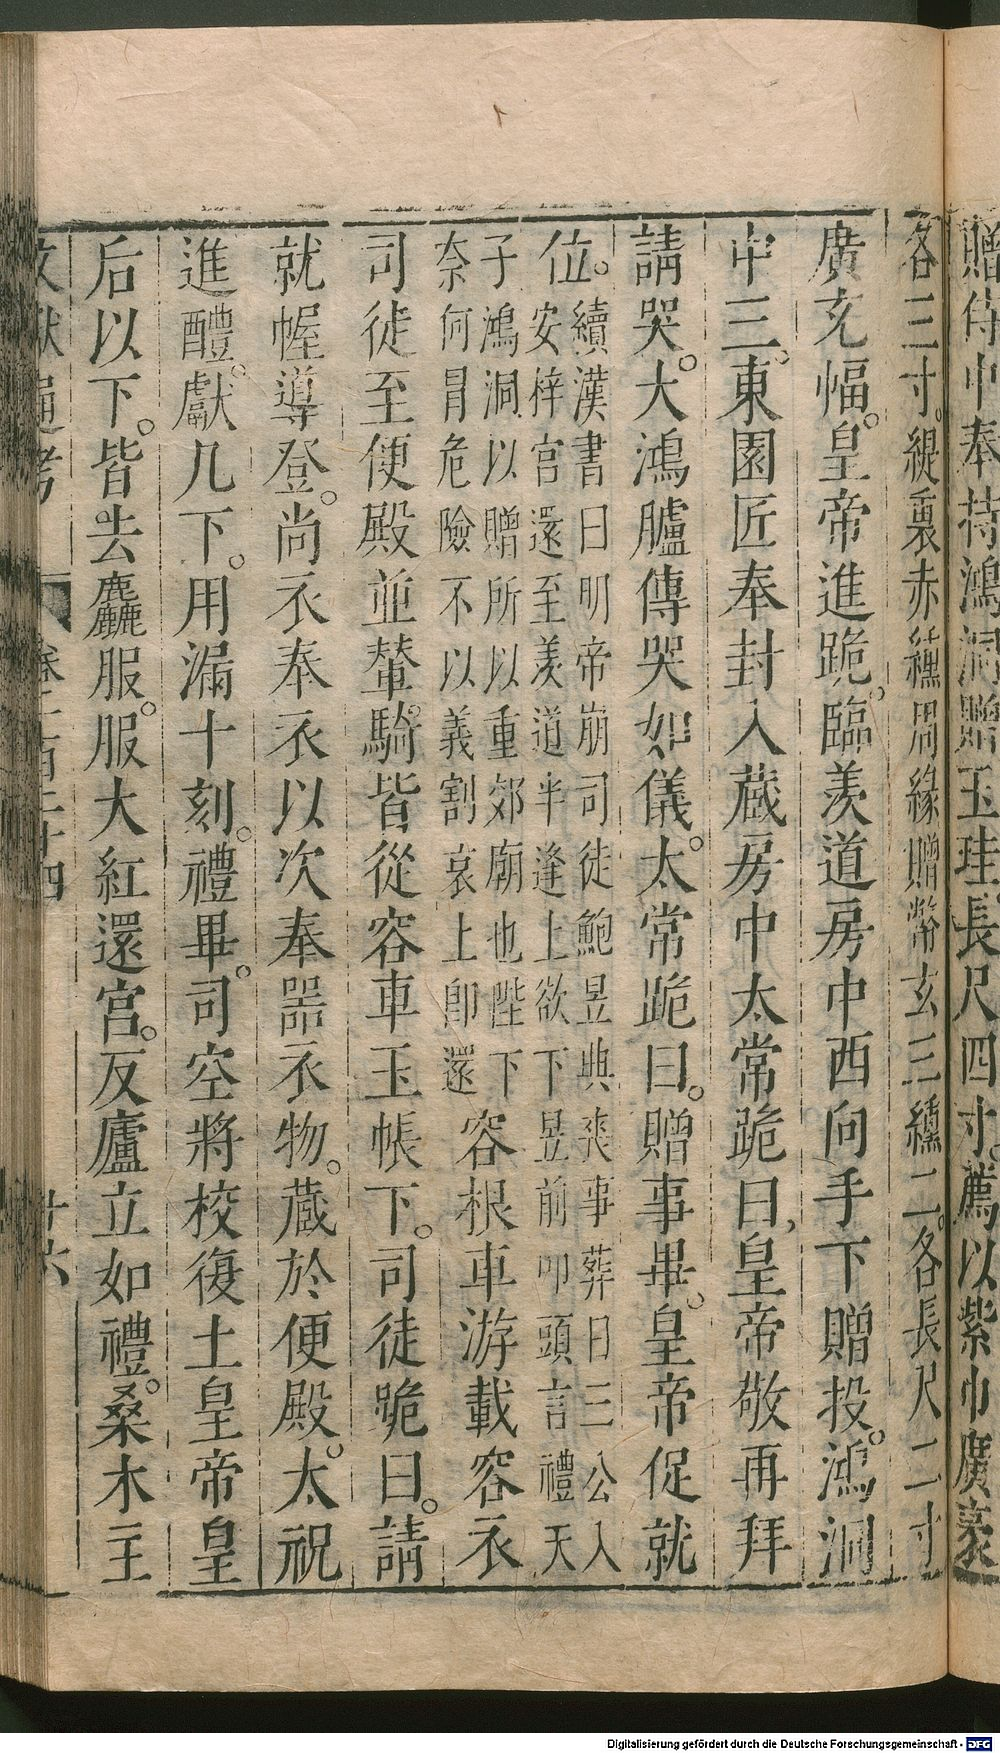 贈侍中奉持鴻洞贈玉珪長尺四寸。薦以紫巾廣袤
各三寸。緹裏赤纁周緣贈幣玄三纁二。各長尺二寸
廣充幅。皇帝進跪。臨羨道房中西向手下贈投。鴻洞
中三。東園匠奉封入藏房中太常跪曰，皇帝敬再拜
請哭。大鴻臚傳哭如儀。太常跪曰。贈事畢。皇帝促就
位。續漢書曰明帝崩司徒鮑昱典喪事葬日三公入
安梓宮還至羨道半逢上欲下昱前叩頭言禮天
子鴻洞以贈所以重郊廟也陛下
奈何冒危險不以義割哀上卽還
容根車游載容衣
司徒至便殿並輦騎。皆從容車玉帳下。司徒跪曰。請
就幄導登。尚衣奉衣以次奉噐衣物。藏於便殿。太祝
進醴。獻凡下。用漏十刻。禮畢。司空將校復土皇帝皇
后以下。皆去麤服。服大紅還宮。反廬立如禮。桑木主
文獻通考
卷一百二十四
廿六
Digitalisierung gefördert durch die Deutsche Forschungsgemeinschaft - DFG